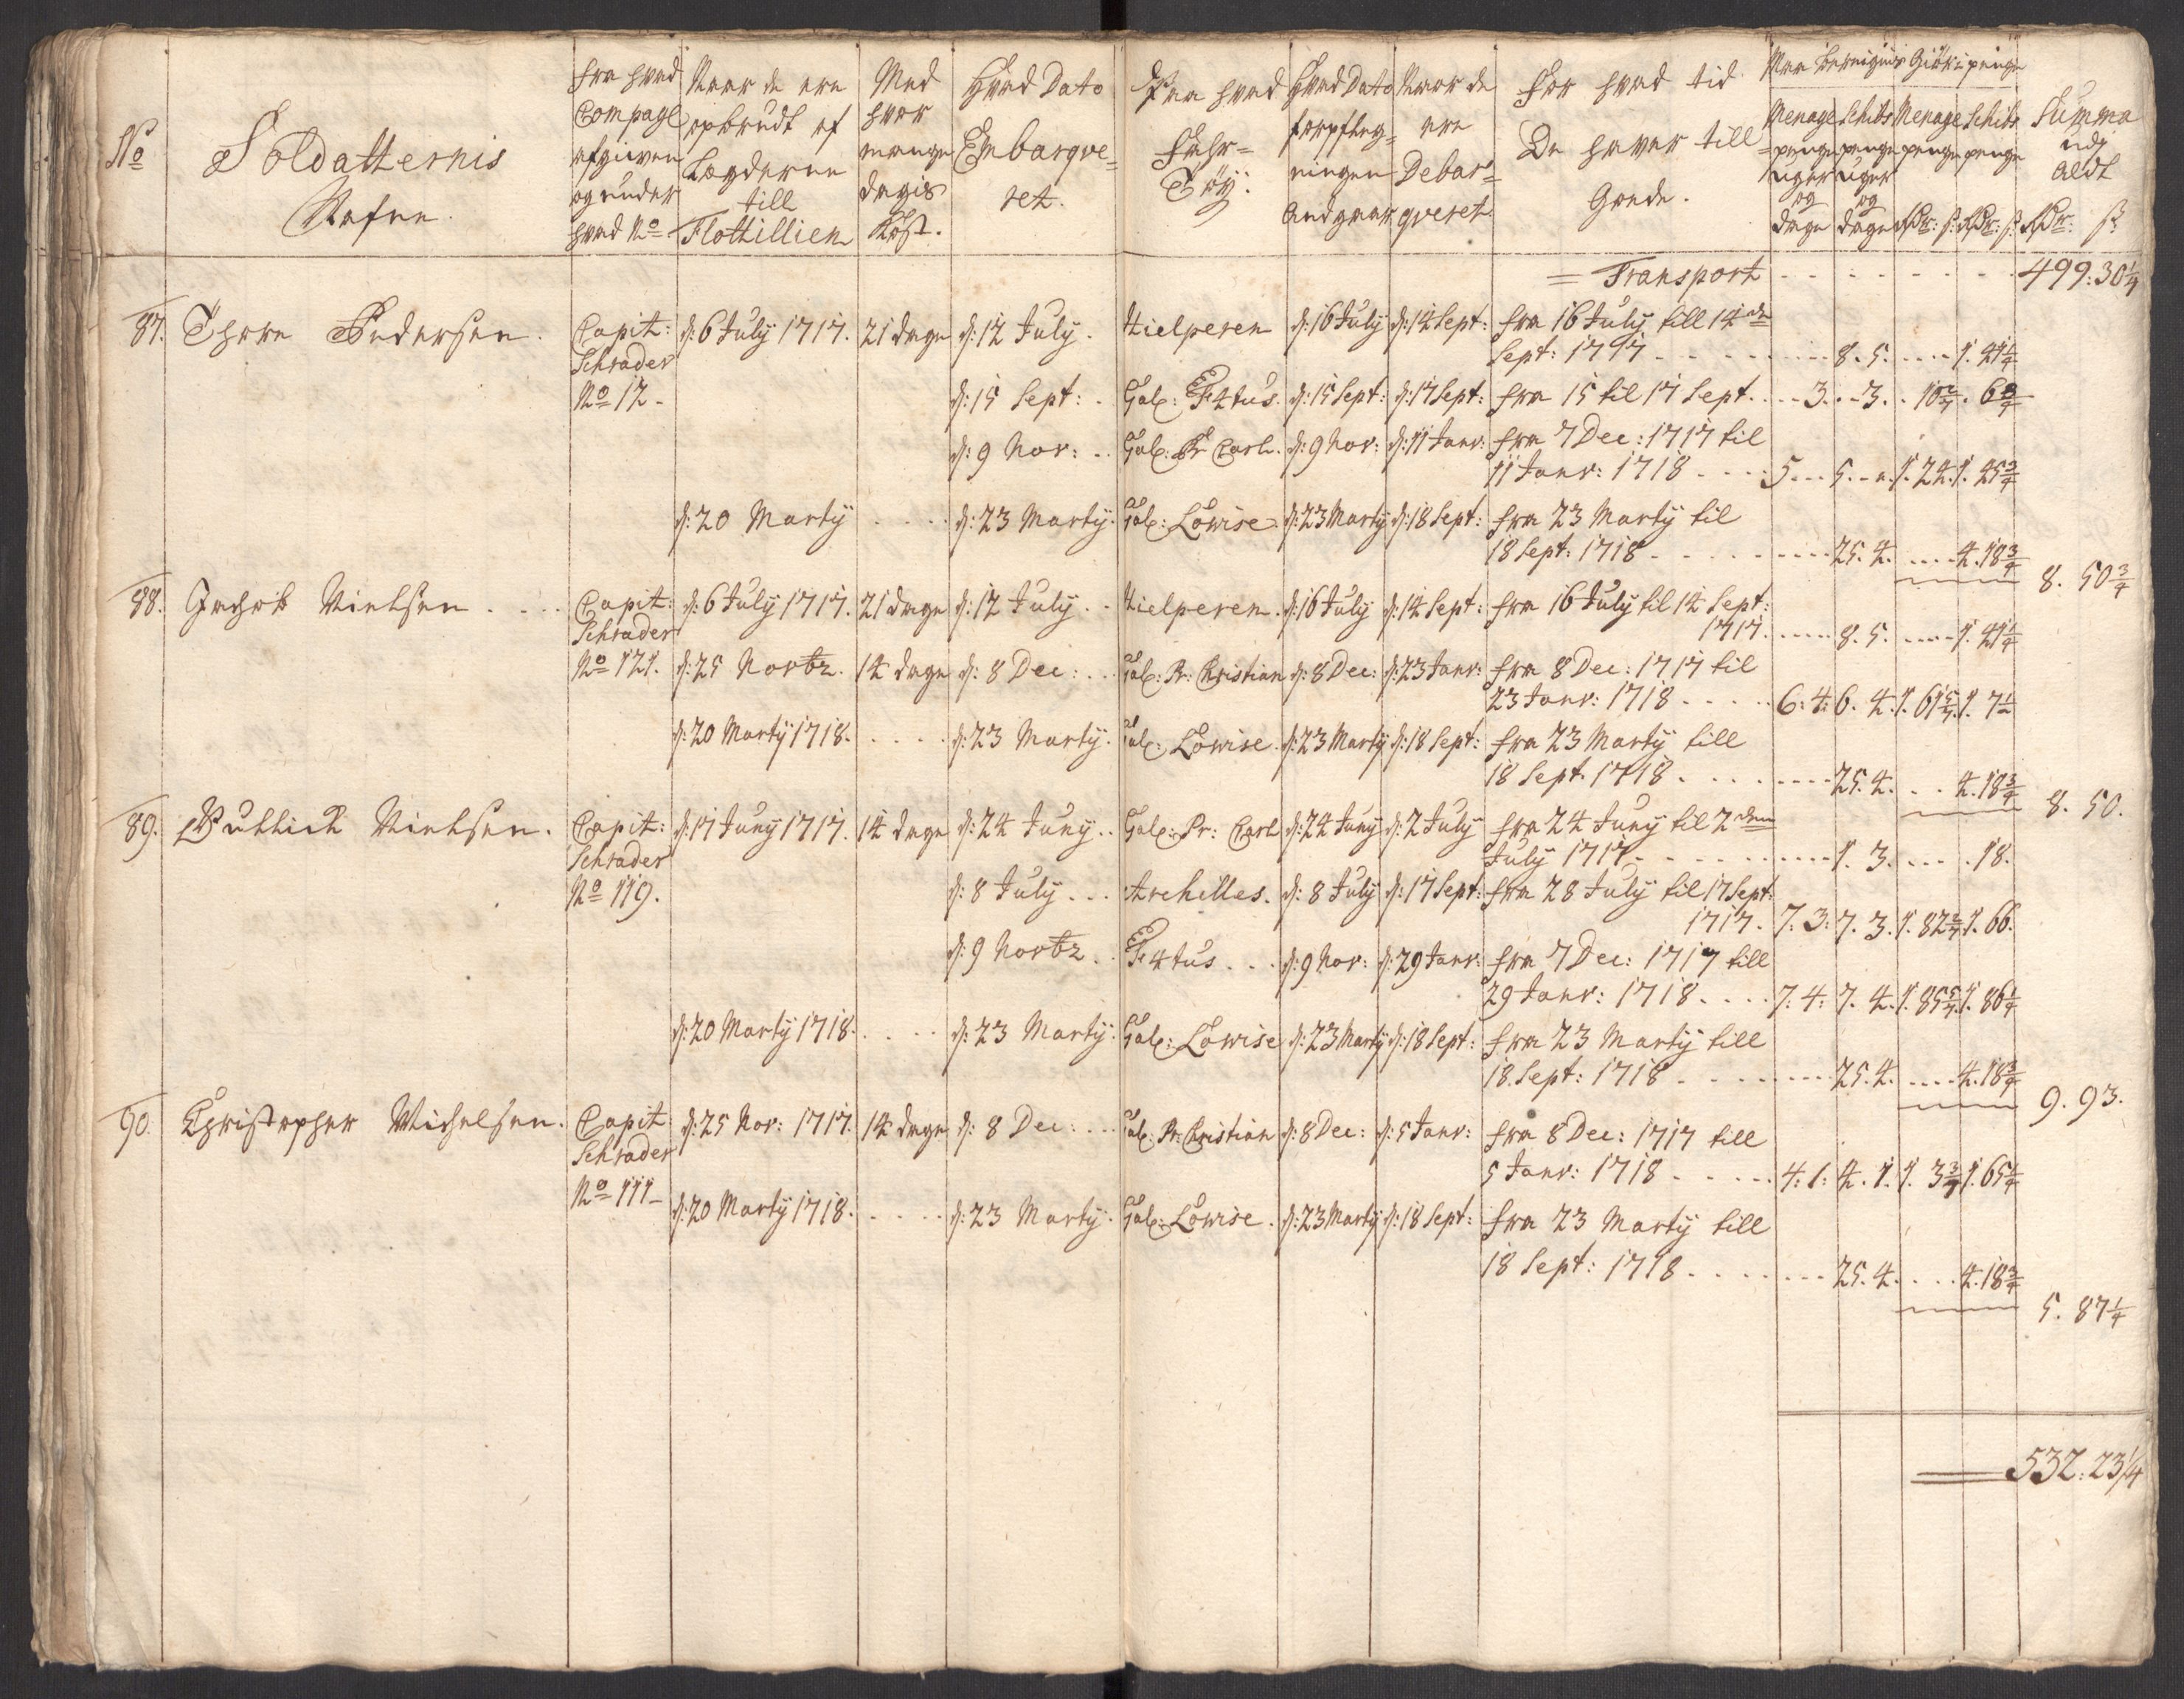 No
Soldatternis
Nafne.
fra hvad
Compagl
afgiven
og under
hvad No
Naar de ere
opbrudt af
Lægderne
till
Flottillien
Med
hvor
mange
dagis
Kost.
Hvad Dato
Embarqve=
ret.
Paa hvad
Fahr=
Töÿ:
Hvad Dato
forpfleg=
ningen
Andgaar
Naar de
ere
Debar=
qveret.
For hvad tid
De haver till
Gode.
Giör penge
Menage Schibs Menage Schibs
penge penge penge penge
Uger Uger
og og
dage dage Rdr: s: Rdr: s:
Summa
udj
aldt
Rdr: s:
= Transport - - - - - - 499: 30 1/4
87. Thore Pedersen. Capit: d: 6 Julÿ 1717. 21 dage d: 12 Julÿ. Hielperen d: 16 Julÿ d: 14 Sept: fra 16 Julÿ till 14 de
Schrader Sept: 1717 - - - 8. 5. - - - 1. 41 1/4
No 12 - d: 15 Sept: . Gal: Fr 4tus d: 15 Sept: d: 17 Sept: fra 15 til 17 Sept. - - 3. - 3. - 10 2/7. 6 3/4
d: 9 Nov: . . Gal: Pr Carl. d: 9 Nov: d: 11 Janv: fra 7 Dec: 1717 til
11 Janv: 1718 - - - 5 - - 5. - - 1. 24. 1. 45 3/4
d: 20 Martÿ . . . . d: 23 Martÿ. Gal: Lowise. d: 23 Martÿ d: 18 Sept: fra 23 Martÿ til
18 Sept: 1718 - - - - 25. 4. - - - 4. 18 3/4
8. 50 3/4
88. Jachob Nielsen . . . Capit: d: 6 Julÿ 1717. 21 dage d: 12 Julÿ . . Hielperen. d: 16 Julÿ d: 14 Sept: fra 16 Julÿ til 14 Sept:
Schrader 1717. - - - 8. 5. - - - 1. 41 1/4
No 121. d: 25 Novbr. 14 dage d: 8 Dec: . . Gal: Pr: Christian d: 8 Dec: d: 23 Janv: fra 8 Dec: 1717 til
23 Janv: 1718 - - - 6: 4: 6. 4. 1. 61 5/7. 1. 7 1/2
d: 20 Martÿ 1718. . . . . d: 23 Martÿ. Gal: Lowise. d: 23 Martÿ d: 18 Sept: fra 23 Martÿ till
18 Sept. 1718 - - - - 25. 4. - - 4. 18 3/4
8. 50.
89. Nielsen. Capit: d: 17 Junÿ 1717. 14 dage d: 24 Junÿ . . Gal: Pr: Carl d: 24 Junÿ d: 2 Julÿ fra 24 Junÿ til 2 den
Schrader Julÿ 1717 - - - - 1. 3. - - - 18.
No 119. d: 8 Julÿ . . . Archilles. d: 8 Julÿ d: 17 Sept: fra 28 Julÿ til 17 Sept:
1717. 7: 3: 7. 3. 1. 82 2/7 1. 66.
d: 9 Novbr . . Fr 4tus . . . d: 9 Nov: d: 29 Janv: fra 7 Dec: 1717 till
29 Janv: 1718 - - - 7: 4: 7. 4. 1. 85 5/7. 1. 86 1/4
d: 20 Martÿ 1718. . . . . d: 23 Martÿ: Gal: Lowise d: 23 Martÿ d: 18 Sept: fra 23 Martÿ till
18. Sept: 1718 - - - - 25. 4. - - - 4. 18 3/4
9. 93.
90. Christopher Michelsen. Capit: d: 25 Nov: 1717. 14 dage d: 8 Dec: . . . Gal: Pr: Christian d: 8 Dec: d: 5 Janv: fra 8 Dec: 1717 till
Schrader 5 Janv: 1718 - - - - 4: 1: 4. 1. 1. 3 3/7 1. 65 1/4
No 111 - d: 20 Martÿ 1718. . . . . d: 23 Martÿ. Gal: Lowise. d: 23 Martÿ d: 18 Sept: fra 23 Martÿ till
18 Sept: 1718 - - - - 25. 4. - - - 4. 18 3/4
5. 87 1/4
532: 23 1/4